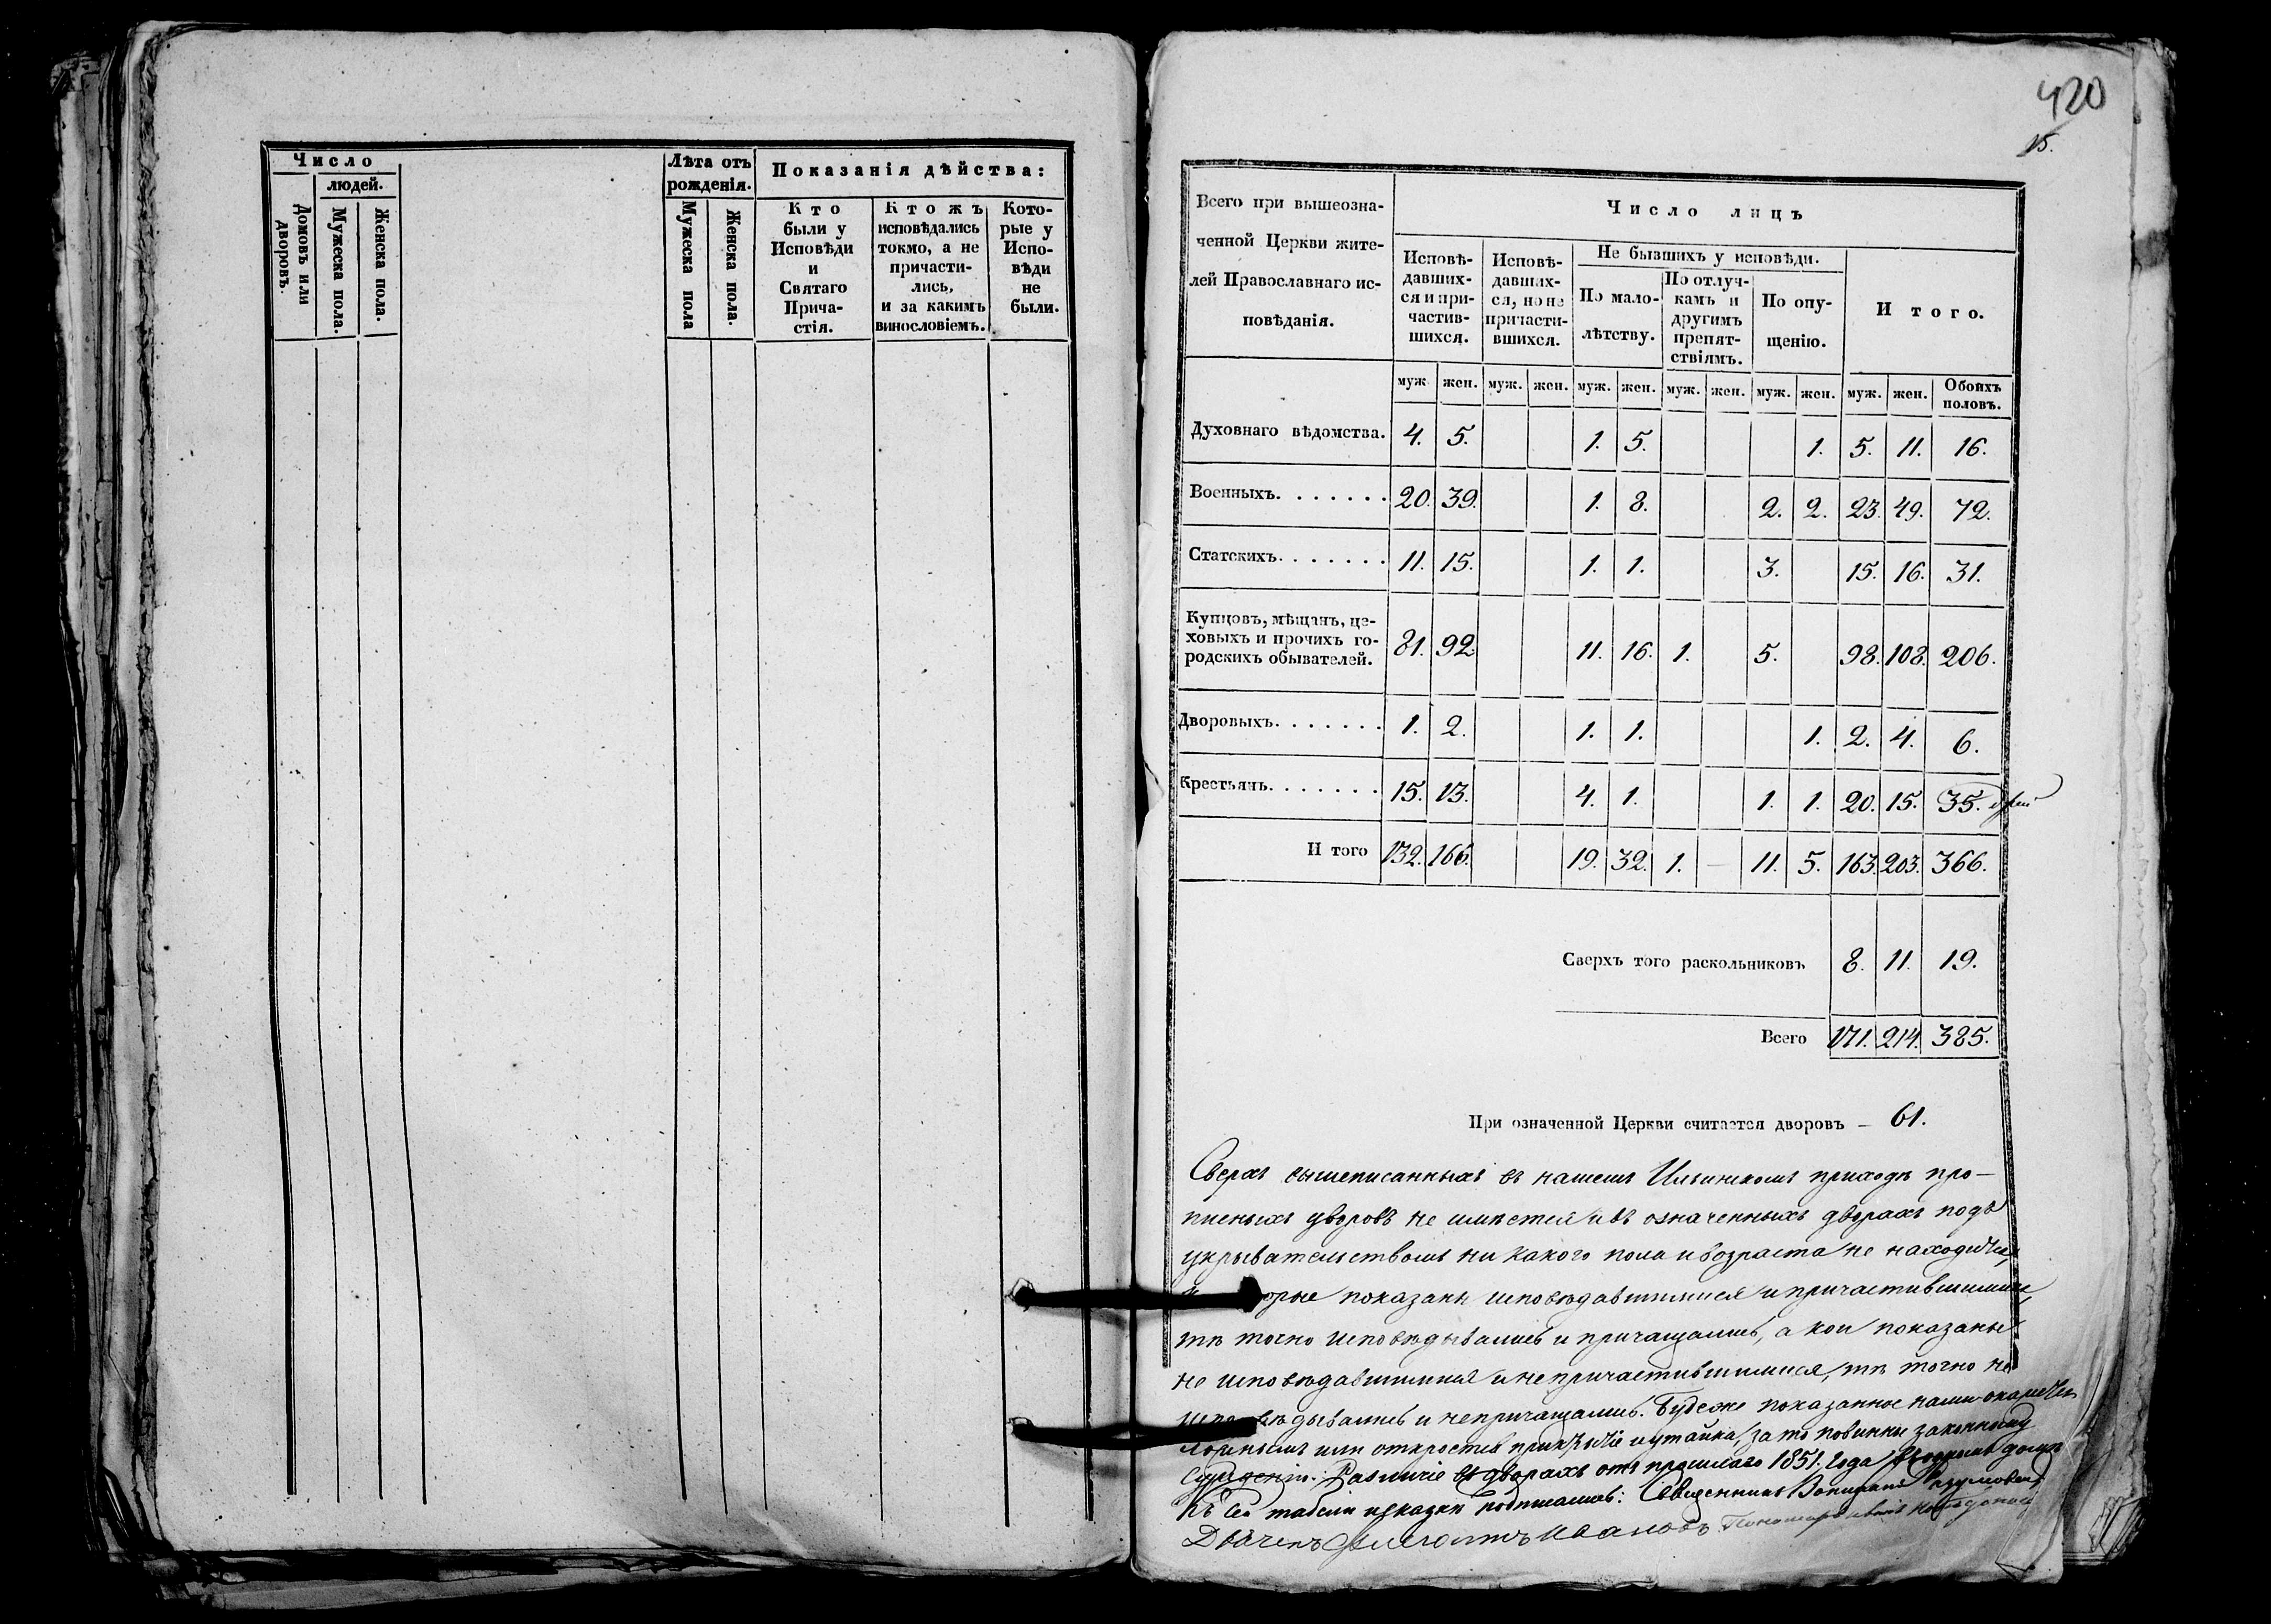 Число
людей.
Домовъ или дворовъ.
Мужеска пола.
Женска пола.
Лѣта отъ
рожденія.
Мужеска пола
Женска пола.
Показанія дѣйства:
Кто
были у
Исповѣди
и
Святаго
Прича-
стія.
Ктожъ
исповѣдались
токмо, а не
причасти-
лись,
и за какимъ
винословіемъ.
Кото-
рые у
Испо-
вѣди
не
были.
420
15.
Всего при вышеозна-
ченной Церкви жите-
лей Православнаго ис-
повѣданія.
Число лицъ
Исповѣ-
давших-
ся и при-
частив-
шихся.
Исповѣ-
давших-
ся, но не
причасти-
вшихся.
Не бывшихъ у исповѣди.
По мало-
лѣтству.
По отлуч-
камъ и
другимъ
препят-
ствіямъ.
По опу-
щенію.
И того.
муж. жен. муж. жен. муж. жен. муж. жен. муж. жен. муж. жен. Обоихъ
половъ.
Духовнаго вѣдомства. 4. 5. 1. 5. 1. 5. 11. 16.
Военныхъ. . . . . . . 20. 39. 1. 8. 2. 2. 23. 49. 72.
Статскихъ. . . . . . . 11. 15. 1. 1. 3. 15. 16. 31.
Купцовъ, мѣщанъ, це-
ховыхъ и прочихъ го-
родскихъ обывателей. 81. 92. 11. 16. 1. 5. 98. 108. 206.
Дворовыхъ. . . . . . . 1. 2. 1. 1. 1. 2. 4. 6.
Крестьянъ. . . . . . . 15. 13. 4. 1. 1. 1. 20. 15. 35.
И того 132. 166. 19. 32. 1. — 11. 5. 163. 203. 366.
Сверхъ того раскольниковъ 8. 11. 19.
Всего 171. 214. 385.
При означенной Церкви считается дворовъ – 61.
Сверхъ вышеписанныхъ въ нашемъ Ильинскомъ приходѣ про-
писныхъ дворовъ не имѣется и въ означенныхъ дворахъ подъ
укрывательствомъ ни какого пола и возраста не находится,
показаны исповѣдавшимися и причастившимися,
тѣ точно исповѣдывались и причащались, а кои показаны
не исповѣдавшимися и не причастившимися, тѣ точно не
исповѣдывались и не причащались. Буде же показанное нами окажется
ложнымъ или откроется прикрытіе и утайка, за то повинны законному
сужденію. Различіе въ дворахъ отъ прошлаго 1851. года
Къ сей табели и сказки подписались: Священникъ
Дьячекъ Ивановъ